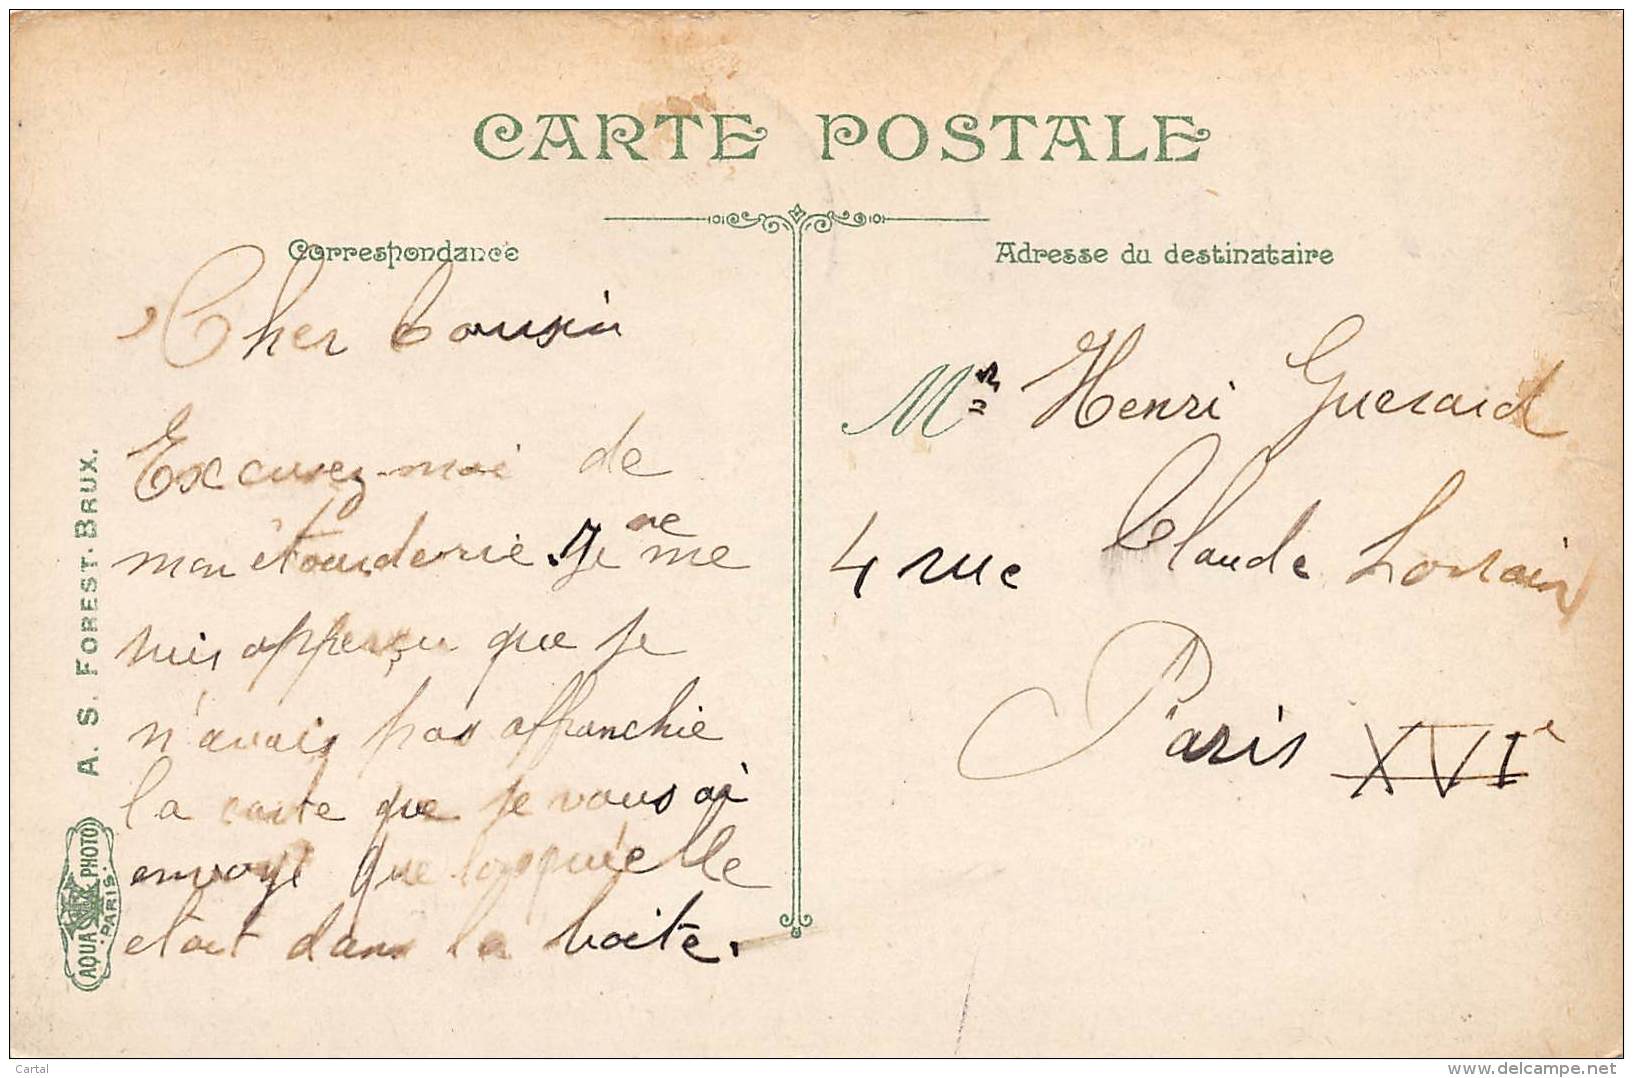 CARTE POSTALE
Correspondance
Cher Cousin
Excusez-moi de
mon étourderie. Je ne me
suis apperçu que je
n'avais pas affranchie
la carte que je vous ai
envoyé que lorsqu'elle
etait dans la boite.
Adresse du destinataire
Mr Henri Guerard
4 rue Claude Lorrain
Paris XVIe
A. S. FOREST-BRUX.
AQUA PHOTO
PARIS.
Cartal
www.delcampe.net